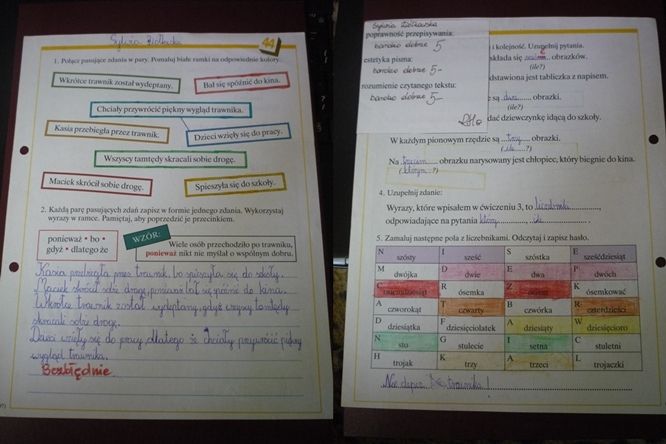 Sylwia Ziółkowska
44
1. Połącz pasujące zdania w pary. Pomaluj białe ramki na odpowiednie kolory.
Wkrótce trawnik został wydeptany.
Bał się spóźnić do kina.
Chciały przywrócić piękny wygląd trawnika.
Kasia przebiegła przez trawnik.
Dzieci wzięły się do pracy.
Wszyscy tamtędy skracali sobie drogę.
Maciek skrócił sobie drogę.
Spieszyła się do szkoły.
2. Każdą parę pasujących zdań zapisz w formie jednego zdania. Wykorzystaj
wyrazy w ramce. Pamiętaj, aby poprzedzić je przecinkiem.
ponieważ • bo •
gdyż • dlatego że
WZÓR:
Wiele osób przechodziło po trawniku,
ponieważ nikt nie myślał o wspólnym dobru.
Kasia przebiegła przez trawnik, bo spieszyła się do szkoły.
Maciek skrócił sobie drogę, ponieważ bał się spóźnić do kina.
Wkrótce trawnik został wydeptany, gdyż wszyscy tamtędy
skracali sobie drogę.
Dzieci wzięły się do pracy dlatego że chciały przywrócić piękny
wygląd trawnika.
Bezbłędnie
Sylwia Ziółkowska
poprawność przepisywania:
bardzo dobrze 5
estetyka pisma:
bardzo dobrze 5-
rozumienie czytanego tekstu:
bardzo dobrze 5-
i kolejność. Uzupełnij pytania.
składa się obrazków.
(ile?)
dstawiona jest tabliczka z napisem.
są dwa obrazki.
(ile?)
dać dziewczynkę idącą do szkoły.
W każdym pionowym rzędzie są trzy obrazki.
(ile?)
Na trzecim obrazku narysowany jest chłopiec, który biegnie do kina.
(którym?)
4. Uzupełnij zdanie:
Wyrazy, które wpisałem w ćwiczeniu 3, to liczebniki
odpowiadające na pytania który, ile
5. Zamaluj następne pola z liczebnikami. Odczytaj i zapisz hasło.
N szósty I sześć S szóstka E sześćdziesiąt
M dwójka D dwie E dwa P dwóch
osiemdziesiąt R ósemka Z K ósemkować
A czworokąt T czwarty B czwórka R czterdzieści
D dziesiątka F dziesięciolatek A dziesiąty W dziesięcioro
N sto G stulecie I setna C stuletni
H trojak K trzy A trzeci L trojaczki
Nie depcz trawnika!